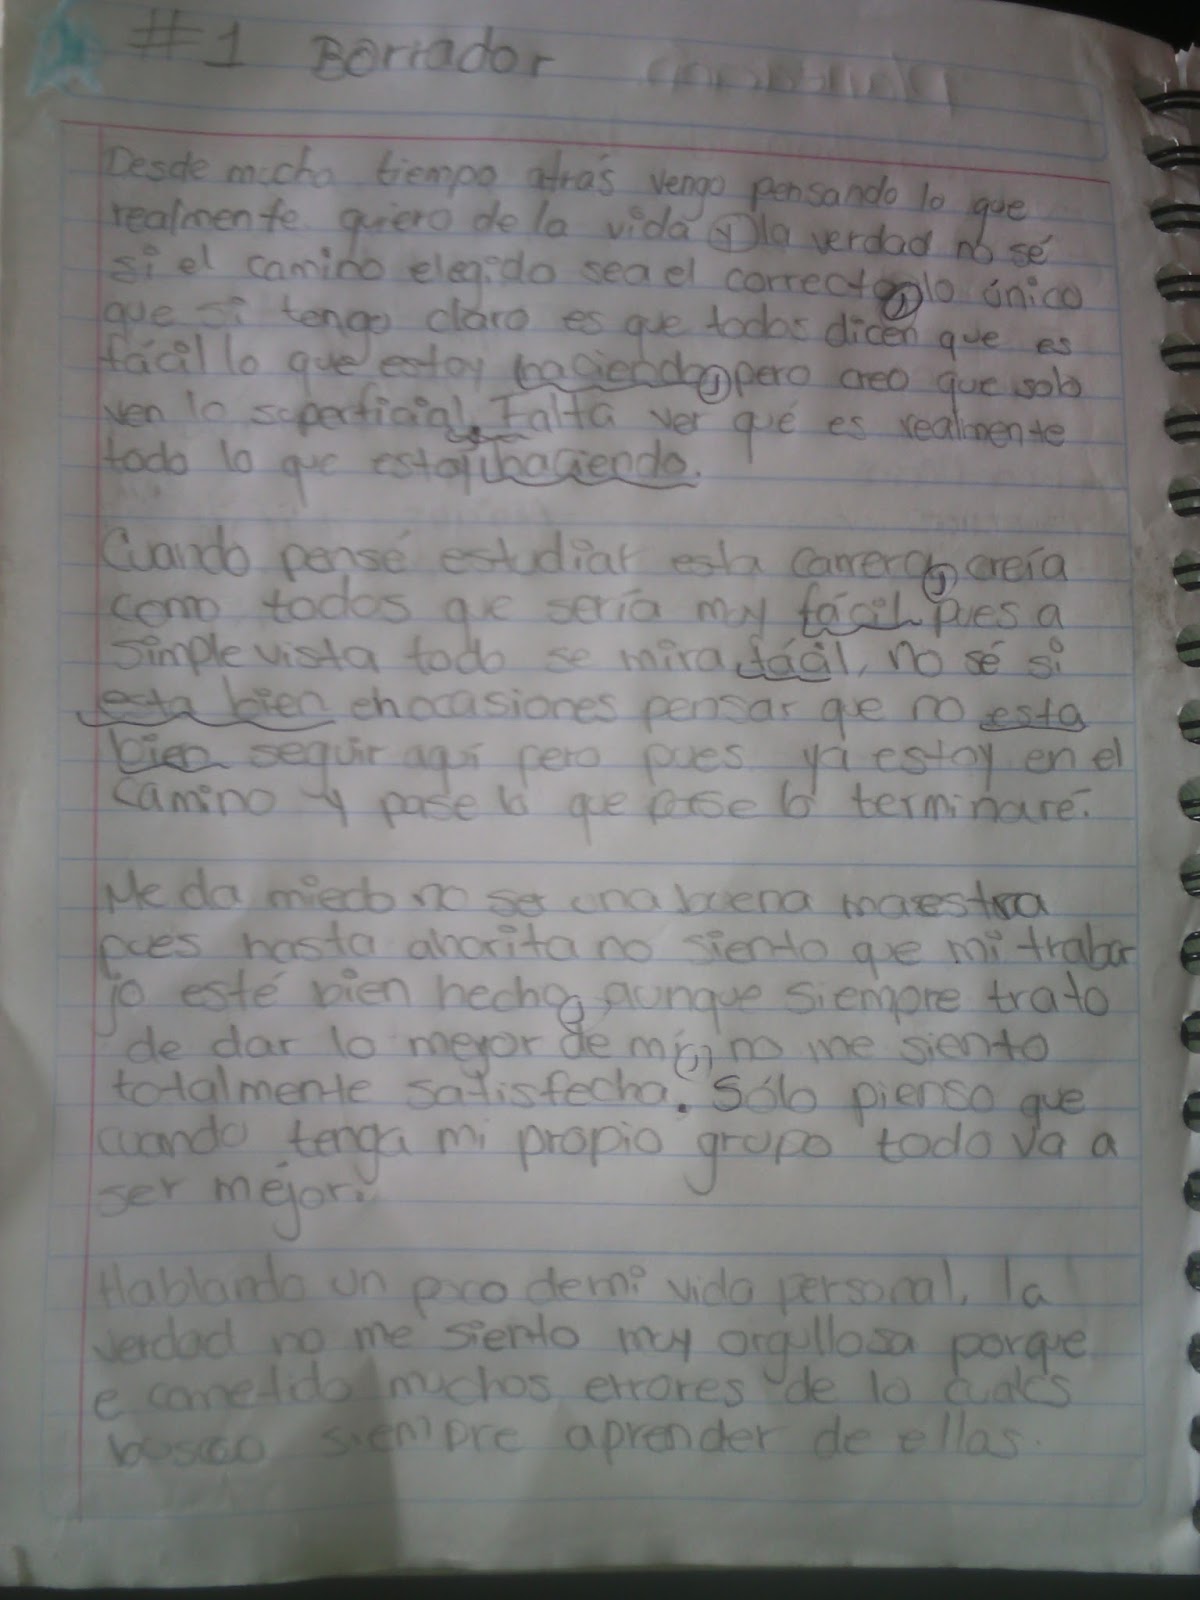 #1 Borrador
Desde mucho tiempo atrás vengo pensando lo que
realmente quiero de la vida y la verdad no sé
si el camino elegido sea el correcto, lo único
que si tengo claro es que todos dicen que es
fácil lo que estoy haciendo, pero creo que solo
ven lo superficial. Falta ver qué es realmente
todo lo que estoy haciendo.
Cuando pensé estudiar esta carrera, creía
como todos que sería muy fácil pues a
simple vista todo se mira fácil, no sé si
esta bien en ocasiones pensar que no esta
bien seguir aquí pero pues ya estoy en el
camino y pase lo que pase lo terminaré.
Me da miedo no ser una buena maestra
pues hasta ahorita no siento que mi traba
jo esté bien hecho, aunque siempre trato
de dar lo mejor de mí, no me siento
totalmente satisfecha. Sólo pienso que
cuando tenga mi propio grupo todo va a
ser mejor.
Hablando un poco de mi vida personal, la
verdad no me siento muy orgullosa porque
e cometido muchos errores de lo cuales
busco siempre aprender de ellas.